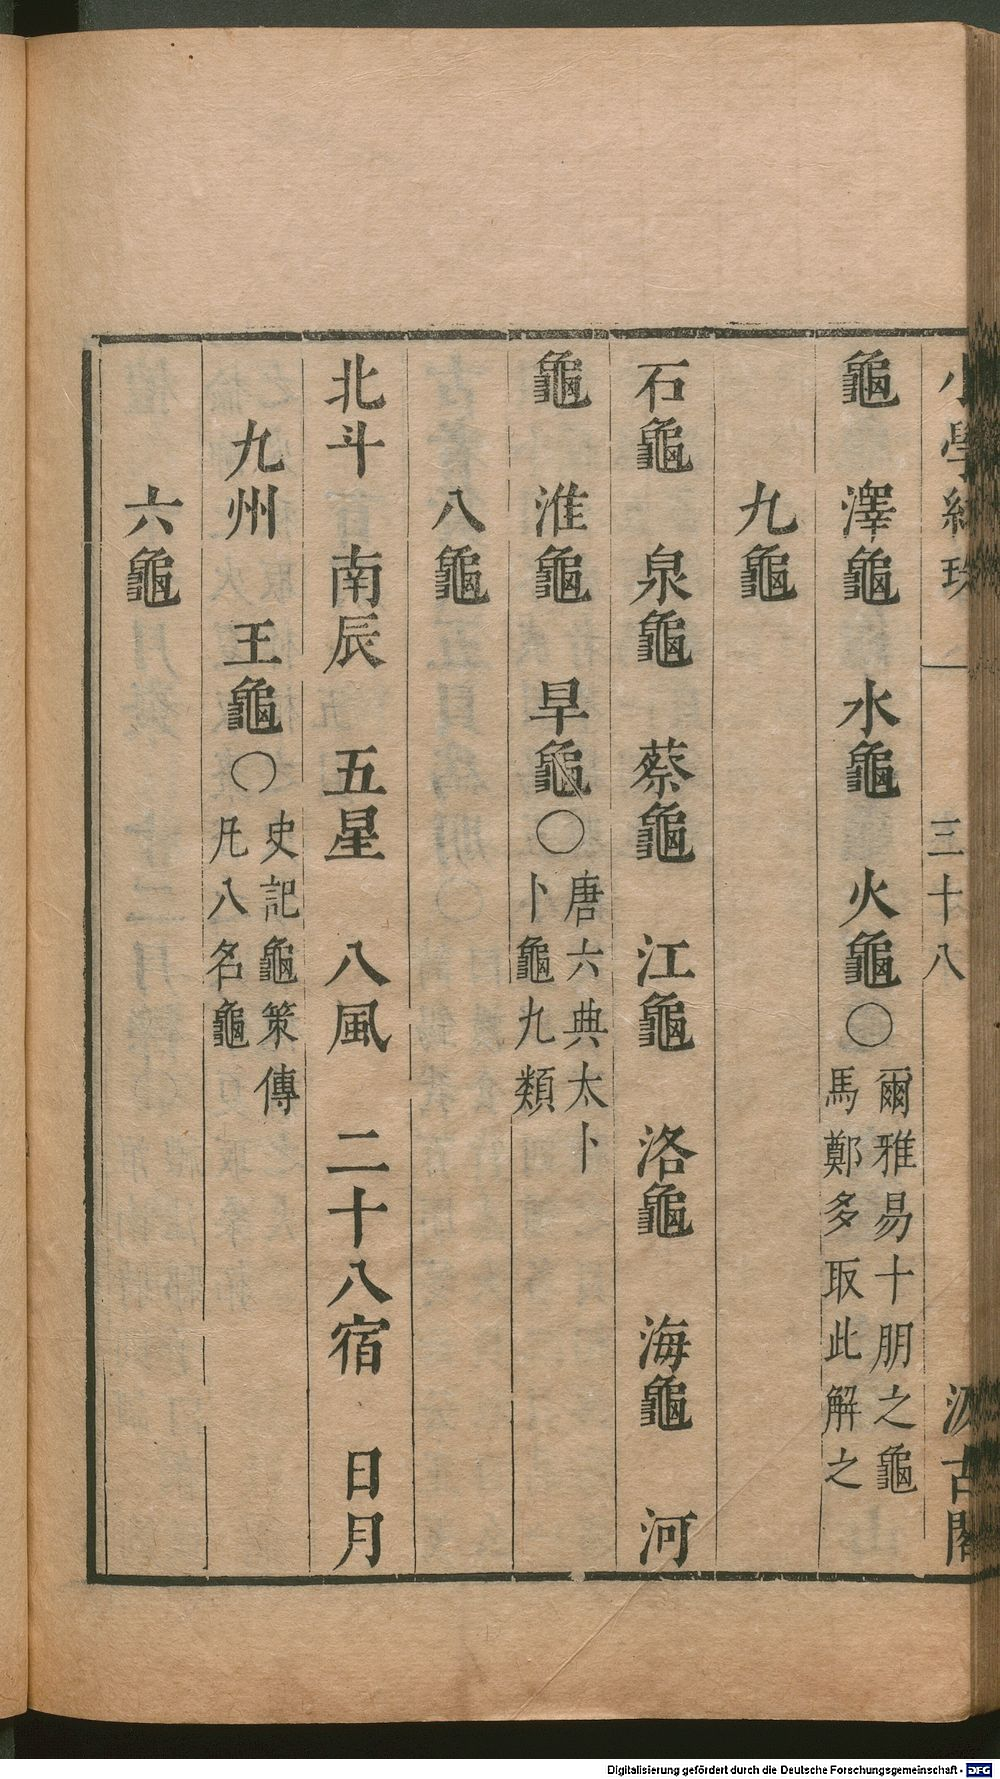 小學紺珠 三十八 汲古閣
龜 澤龜 水龜 火龜○爾雅易十朋之龜
馬鄭多取此解之
九龜
石龜 泉龜 蔡龜 江龜 洛龜 海龜 河
龜 淮龜 早龜○唐六典太卜
卜龜九類
八龜
北斗 南辰 五星 八風 二十八宿 日月
九州 王龜○史記龜策傳
凡八名龜
六龜
Digitalisierung gefördert durch die Deutsche Forschungsgemeinschaft - DFG